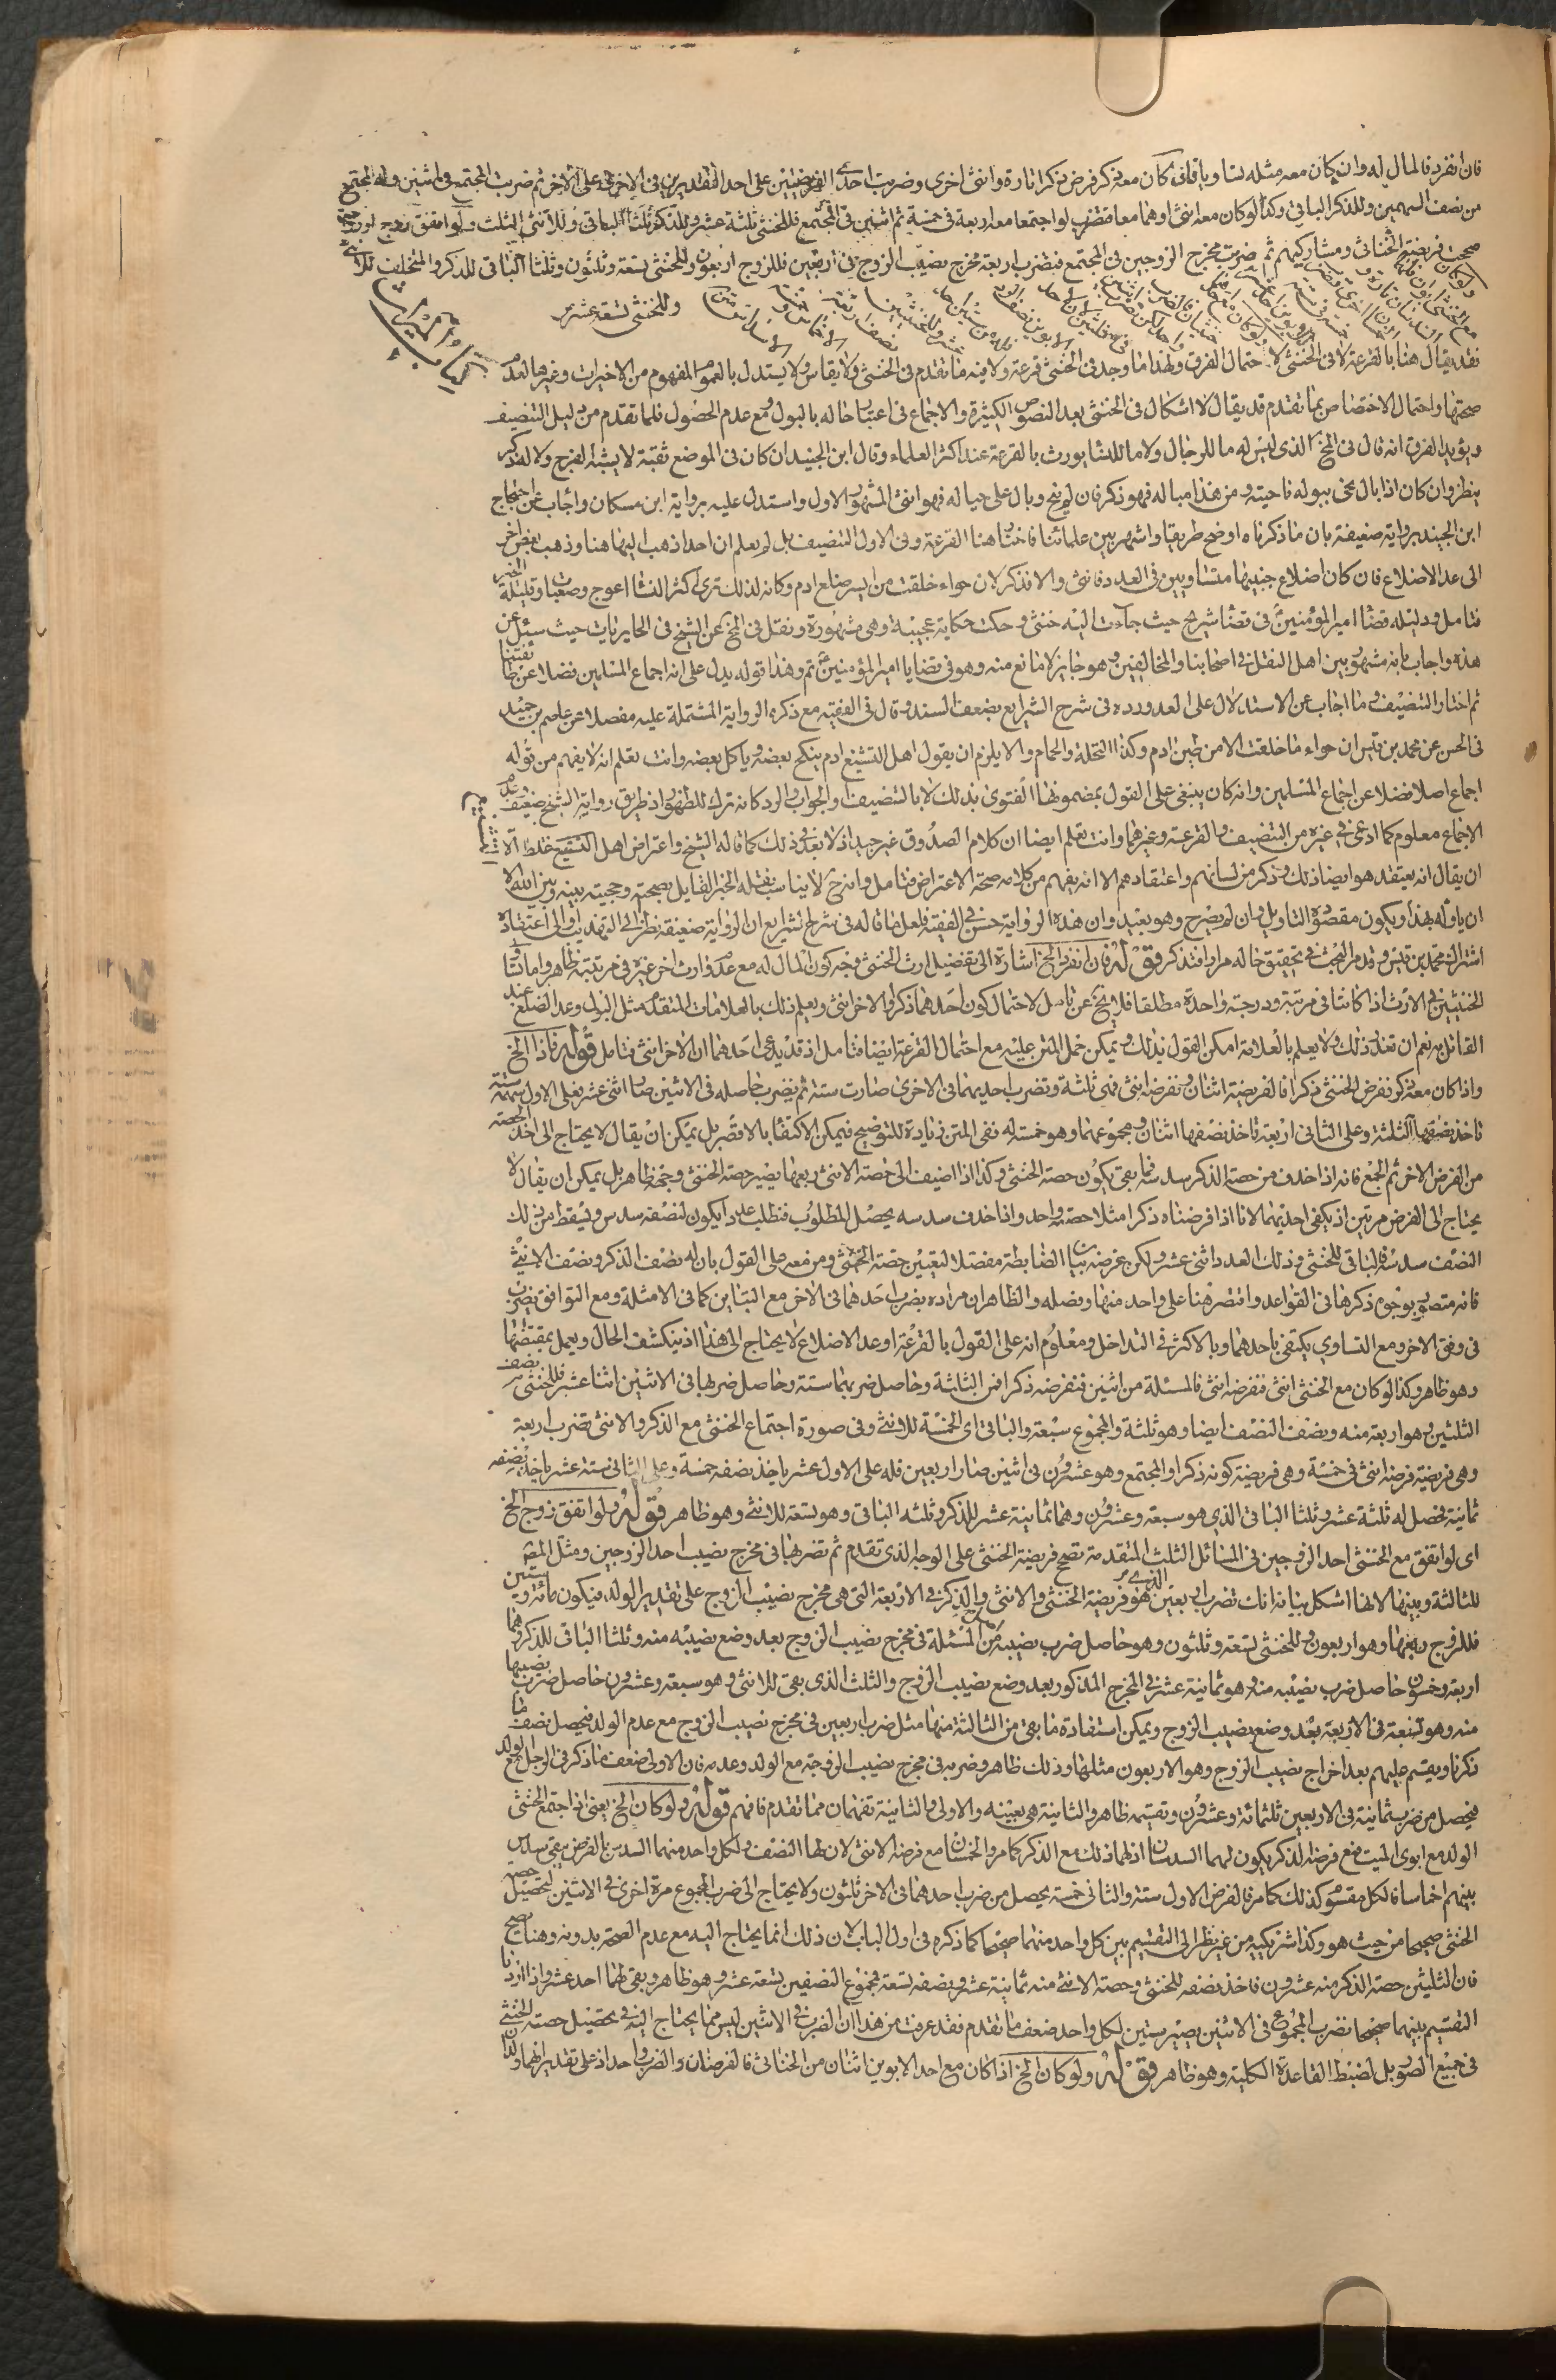 فان انفرد فالمال له وان كان معه مثله تساويا فان كان معه ذكر فرض ذكرا تارة وانثى اخرى وضربت احدى الفريضتين على احد التقديرين في الاخرى على الاخر ثم ضربت المجتمع في اثنين وله المجتمع
من نصف السهمين وللذكر الباقي وكذا لو كان معه انثى او هما معا فتضرب لو اجتمعا معه اربعة في خمسة ثم اثنين في المجتمع فللخنثى ثلثة عشر وللذكر ثلثا الباقي وللانثى الثلث ولو اتفق زوج او زوجة
صححت فريضة الخناثى ومشاركيهم ثم ضربت مخرج الزوجين في المجتمع فيضرب اربعة مخرج نصيب الزوج في اربعين فللزوج اربعون وللخنثى تسعة وثلثون وثلثا الباقي للذكر والمتخلف للانثى
وللخنثى تسعة عشر
فقد يقال هنا بالقرعة لا في الخنثى لاحتمال الفرق ولهذا ما وجد في الخنثى قرعة ولا فيه ما تقدم في الخنثى ولا يقاس ولا يستدل بالعموم المفهوم من الاخبار وغيرها لعدم
صحتها واحتمال الاختصاص بما تقدم قد يقال لا اشكال في الخنثى بعد النصوص الكثيرة والاجماع في اعتبار حاله بالبول ومع عدم الحصول فلما تقدم من دليل التنصيف
ويؤيد الفرق انه قال في المخ الذي ليس له ما للرجال ولا ما للنساء يورث بالقرعة عند اكثر العلماء وقال ابن الجنيد ان كان في الموضع ثقبة لا يشبه الفرج ولا له ذكر
ينظر وان كان اذا بال نحى ببوله ناحية من هذا مباله فهو ذكر فان لم ينح وبال على حياله فهو انثى المشهور الاول واستدل عليه برواية ابن مسكان واجاب عن احتجاج
ابن الجنيد برواية ضعيفة بان ما ذكرناه اوضح طريقا واشهر بين علمائنا فاختار هنا القرعة وفي الاول التنصيف بل لم يعلم ان احدا ذهب اليها هنا وذهب بعض اخر
الى عد الاضلاع فان كان اضلاع جنبيها متساويين في العدد فانثى والا فذكر لان حواء خلقت من ايسر ضلع ادم وكانه لذلك ترى اكثر النساء اعوج وصعبا وقليلة الخير
فتامل ودليله قضاء امير المؤمنين في قضاء شريح حيث جاءت اليه خنثى وحكت حكاية عجيبة وهي مشهورة ونقل في المخ عن الشيخ في الحايريات حيث سئل عن
هذه واجاب بانه مشهور بين اهل النقل في اصحابنا والمخالفين وهو جايز لا مانع منه وهو في قضايا امير المؤمنين ثم وهذا قوله يدل على انه اجماع المسلمين فضلا عن طائفتنا
ثم اختار التنصيف وما اجاب عن الاستدلال على العد ورده في شرح الشرايع بضعف السند وقال في الفقيه مع ذكره الرواية المشتملة عليه مفصلا عن عاصم بن حميد
في الحسن عن محمد بن قيس ان حواء ما خلقت الا من طين ادم وكذا النخلة والحمام والا يلزم ان يقول اهل التشنيع ادم ينكح بعضه وياكل بعضه وانت تعلم انه لا يفهم من قوله
اجماع اصلا فضلا عن اجماع المسلمين وانه كان ينبغي على القول بمضمونها الفتوى بذلك لا بالتنصيف والجواب والرد كانه تركه للظهور اذ طريق رواية الشيخ ضعيف وعدم
الاجماع معلوم كما ادعى في غيره من التنصيف والقرعة وغيرهما وانت تعلم ايضا ان كلام الصدوق غير جيد اذ لا بعد في ذلك كما قاله الشيخ واعتراض اهل التشنيع غلط الا
ان يقال انه يعتقد هو ايضا ذلك وذكر من لسانهم واعتقادهم الا انه يفهم من كلامه صحة الاعتراض فتامل وانه ح لا يناسب نقله الخبر القايل بصحته وحجيته بينه وبين الله الا
ان ياوله بهذا ويكون مقصوده التاويل وان لم يصرح وهو بعيد وان هذه الرواية حسن في الفقيه فلعل ما قاله في شرح الشرايع ان الرواية ضعيفة نظر الى التهذيب والى اعتقاده
اشتراك محمد بن قيس وقد مر البحث في تحقيق حاله مرارا فتذكر قوله فان انفرد الخ اشارة الى تفضيل ارث الخنثى وجه كون المال له مع عدم وارث اخر غيره في مرتبته ظاهر واما تساوي
الخنثيين في الارث اذا كانتا في مرتبة ودرجة واحدة مطلقا فلا يخ عن تامل لاحتمال كون احدهما ذكرا والاخر انثى ويعلم ذلك بالعلامات المتقدمة مثل البول وعد الضلع عند
القائل به نعم ان تعذر ذلك ولا يعلم بالعلامة امكن القول بذلك ويمكن حمل المتن عليه مع احتمال القرعة ايضا فتامل اذ قد يدعى احدهما ان الاخر انثى فتامل قوله فاذا الخ
واذا كان معه ذكر نفرض الخنثى ذكرا فالفريضة اثنان ونفرضه انثى فمن ثلثة ونضرب احديهما في الاخرى صارت ستة ثم يضرب حاصله في الاثنين صار اثنى عشر فعلى الاول سهمه ستة
ناخذ نصفها الثلثة وعلى الثاني اربعة ناخذ نصفها اثنان ومجموعهما وهو خمسة له ففي المتن زيادة للتوضيح فيمكن الاكتفاء بالاقصر بل يمكن ان يقال لا يحتاج الى اخذ الحصة
من الفرض الاخر ثم الجمع فانه اذا حذف من حصة الذكر سدسه فما بقى يكون حصة الخنثى وكذا اذا اضيف الى حصة الانثى ربعها يصير حصة الخنثى وجهه ظاهر بل يمكن ان يقال لا
يحتاج الى الفرض مرتين اذ يكفى احديهما لانا اذا فرضناه ذكرا مثلا حصته واحد واذا حذف سدسه يحصل المطلوب فنطلب عددا يكون لنصفه سدس ويسقط من ذلك
النصف سدسه فالباقي للخنثى وذلك العدد اثنى عشر ولكن غرضه بيان الضابطة مفصلا لتعيين حصة الخنثى ومن معه على القول بان له نصف الذكر ونصف الانثى
فانه متصور بوجوه ذكرها في القواعد واقتصر هنا على واحد منها وفصله والظاهر ان مراده بضرب احدهما في الاخر مع التباين كما في الامثلة ومع التوافق يضرب
في وفق الاخر ومع التساوي يكتفى باحدهما وبالاكثر في التداخل ومعلوم انه على القول بالقرعة او عد الاضلاع لا يحتاج الى هذا اذ ينكشف الحال ويعمل بمقتضاها
وهو ظاهر وكذا لو كان مع الخنثى انثى نفرضه انثى فالمسئلة من اثنين فنفرضه ذكرا فمن الثلثة وحاصل ضربهما ستة وحاصل ضربها في الاثنين اثنا عشر فللخنثى نصف
الثلثين وهو اربعة منه ونصف النصف ايضا وهو ثلثة والمجموع سبعة والباقي اي الخمسة للانثى وفي صورة اجتماع الخنثى مع الذكر والانثى تضرب اربعة
وهي فريضة فرضه انثى في خمسة وهي فريضة كونه ذكرا والمجتمع وهو عشرون في اثنين صار اربعين فله على الاول عشر ياخذ نصفه خمسة وعلى الثاني ستة عشر ياخذ نصفه
ثمانية فحصل له ثلثة عشر وثلثا الباقي الذي هو سبعة وعشرون وهما ثمانية عشر للذكر وثلثه الباقي وهو تسعة للانثى وهو ظاهر قوله ولو اتفق زوج الخ
اى لو اتفق مع الخنثى احد الزوجين في المسائل الثلث المتقدمة تصح فريضة الخنثى على الوجه الذي تقدم ثم تضربها في مخرج نصيب احد الزوجين ومثل المص
للثالثة وبينها لانها اشكل بيانه انك تضرب اربعين الذي هو فريضة الخنثى والانثى والذكر في الاربعة التي هي مخرج نصيب الزوج على تقدير الولد فيكون مائة وستين
فللزوج ربعها وهو اربعون وللخنثى تسعة وثلثون وهو حاصل ضرب نصيبه من المسئلة في مخرج نصيب الزوج بعد وضع نصيبه منه وثلثا الباقي للذكر وهما
اربعة وخمسون حاصل ضرب نصيبه منه وهو ثمانية عشر في المخرج المذكور بعد وضع نصيب الزوج والثلث الذي بقى للانثى وهو سبعة وعشرون حاصل ضرب نصيبها
منه وهو تسعة في الاربعة بعد وضع نصيب الزوج ويمكن استفادة ما بقى من الثالثة منها مثل ضرب اربعين في مخرج نصيب الزوج مع عدم الولد فيحصل نصف ما
ذكرنا ويقسم عليهم بعد اخراج نصيب الزوج وهو الاربعون مثلها وذلك ظاهر وضربه في مخرج نصيب الزوجة مع الولد وعدمه فان الاولى ضعف ما ذكر في الرجل مع الولد
فيحصل من ضرب ثمانية في الاربعين ثلثمائة وعشرون وتقسيمه ظاهر والثانية هي بعينه والاولى والثانية تفهمان مما تقدم فافهم قوله ولو كان الخ يعني اذا اجتمع الخنثى
الولد مع ابوي الميت فمع فرضه الذكر يكون لهما السدسان اذ لهما ذلك مع الذكر كما مر والخمسان مع فرضه الانثى لان لها النصف ولكل واحد منهما السدس بالفرض بقى سدس
بينهم اخماسا فالكل مقسوم كذلك كما مر فالفرض الاول ستة والثاني خمسة يحصل من ضرب احدهما في الاخر ثلثون ولا يحتاج الى ضرب المجموع مرة اخرى في الاثنين لتحصيل حصة
الخنثى صحيحا من حيث هو وكذا شريكيه من غير نظر الى التقسيم بين كل واحد منهما صحيحا كما ذكره في اول الباب لان ذلك انما يحتاج اليه مع عدم الصحة بدونه وهنا يصح
فان الثلثين حصة الذكر منه عشرون فاخذ نصفه للخنثى وحصة الانثى منه ثمانية عشر ونصفه تسعة مجموع النصفين تسعة عشر وهو ظاهر وبقى لهما احد عشر واذا اردنا
التقسيم بينهما صحيحا نضرب المجموع في الاثنين يصير ستين لكل واحد ضعف ما تقدم فقد عرفت من هذا ان الضرب في الاثنين ليس مما يحتاج اليه في تحصيل حصة الخنثى
في جميع الصور بل لضبط القاعدة الكلية وهو ظاهر قوله ولو كان الخ اذا كان مع احد الابوين اثنان من الخناثى فالفرضان والضرب واحد اذ على تقدير انهما ولدان